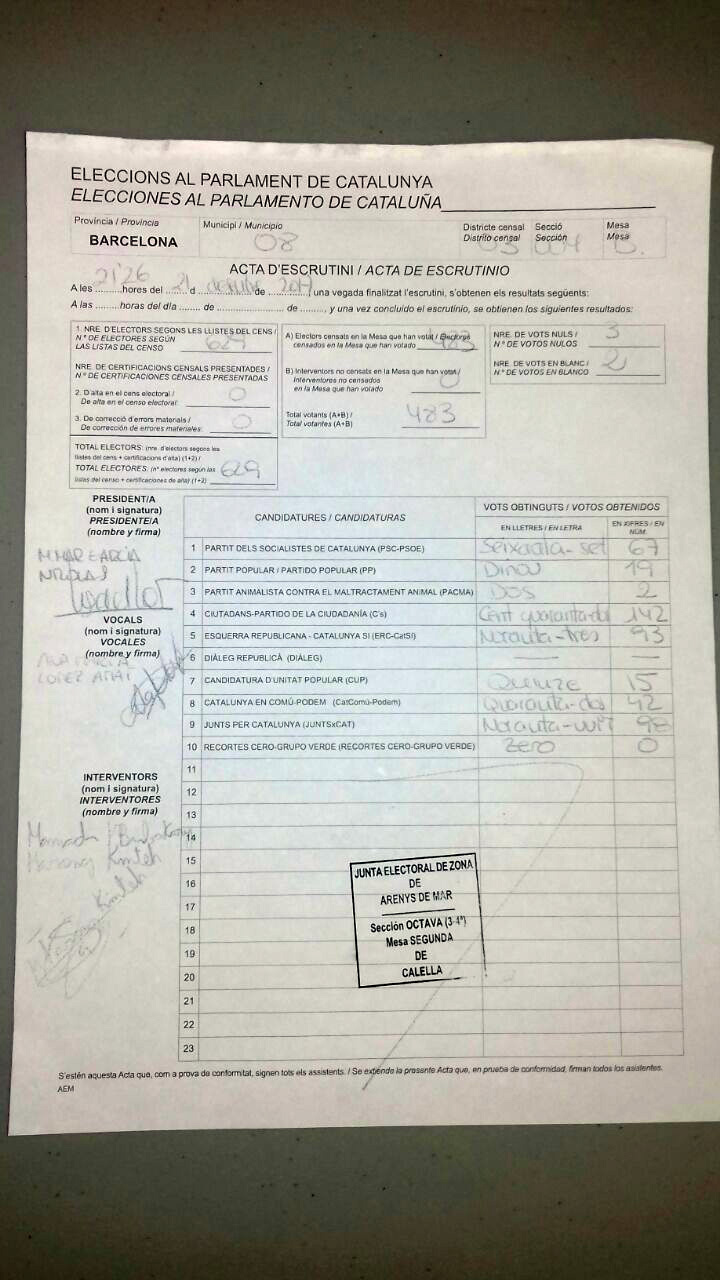 ELECCIONS AL PARLAMENT DE CATALUNYA
ELECCIONES AL PARLAMENTO DE CATALUÑA
Província / Provincia
BARCELONA
Municipi / Municipio
08
Districte censal
Distrito censal
03
Secció
Sección
004
Mesa
Mesa
B.
ACTA D'ESCRUTINI / ACTA DE ESCRUTINIO
A les 21'26 hores del 21 d desembre de 2017, una vegada finalitzat l'escrutini, s'obtenen els resultats següents:
A las ......... horas del día ........ de .................. de ........, y una vez concluido el escrutinio, se obtienen los siguientes resultados:
1. NRE. D'ELECTORS SEGONS LES LLISTES DEL CENS /
Nº DE ELECTORES SEGÚN
LAS LISTAS DEL CENSO 629
NRE. DE CERTIFICACIONS CENSALS PRESENTADES /
Nº DE CERTIFICACIONES CENSALES PRESENTADAS
2. D'alta en el cens electoral /
De alta en el censo electoral: 0
3. De correcció d'errors materials /
De corrección de errores materiales: 0
TOTAL ELECTORS: (nre. d'electors segons les
llistes del cens + certificacions d'alta) (1+2) /
TOTAL ELECTORES: (nº electores según las
listas del censo + certificaciones de alta) (1+2) 629
A) Electors censats en la Mesa que han votat / Electores
censados en la Mesa que han votado 483
B) Interventors no censats en la Mesa que han votat /
Interventores no censados
en la Mesa que han votado 0
Total votants (A+B) /
Total votantes (A+B) 483
NRE. DE VOTS NULS /
Nº DE VOTOS NULOS 3
NRE. DE VOTS EN BLANC /
Nº DE VOTOS EN BLANCO 2
PRESIDENT/A
(nom i signatura)
PRESIDENTE/A
(nombre y firma)
M MAR GARCIA
VOCALS
(nom i signatura)
VOCALES
(nombre y firma)
LOPEZ
INTERVENTORS
(nom i signatura)
INTERVENTORES
(nombre y firma)
Kinteh
Kinteh
CANDIDATURES / CANDIDATURAS
VOTS OBTINGUTS / VOTOS OBTENIDOS
EN LLETRES / EN LETRA
EN XIFRES / EN NÚM.
1 PARTIT DELS SOCIALISTES DE CATALUNYA (PSC-PSOE) Seixanta-set 67
2 PARTIT POPULAR / PARTIDO POPULAR (PP) Dinou 19
3 PARTIT ANIMALISTA CONTRA EL MALTRACTAMENT ANIMAL (PACMA) Dos 2
4 CIUTADANS-PARTIDO DE LA CIUDADANÍA (C's) Cent quaranta-dos 142
5 ESQUERRA REPUBLICANA - CATALUNYA SI (ERC-CatSI) Noranta-tres 93
6 DIÀLEG REPUBLICÀ (DIÀLEG) — —
7 CANDIDATURA D'UNITAT POPULAR (CUP) Quinze 15
8 CATALUNYA EN COMÚ-PODEM (CatComú-Podem) Quaranta-dos 42
9 JUNTS PER CATALUNYA (JUNTSxCAT) Noranta-vuit 98
10 RECORTES CERO-GRUPO VERDE (RECORTES CERO-GRUPO VERDE) Zero 0
11
12
13
14
15
16
17
18
19
20
21
22
23
JUNTA ELECTORAL DE ZONA
DE
ARENYS DE MAR
Sección OCTAVA (3-4ª)
Mesa SEGUNDA
DE
CALELLA
S'estén aquesta Acta que, com a prova de conformitat, signen tots els assistents. / Se extiende la presente Acta que, en prueba de conformidad, firman todos los asistentes.
AEM